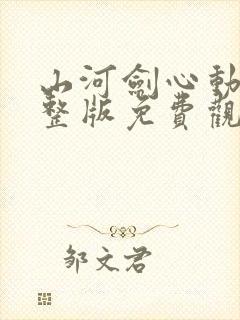 山河劍心動
整版免費觀
鄒文君